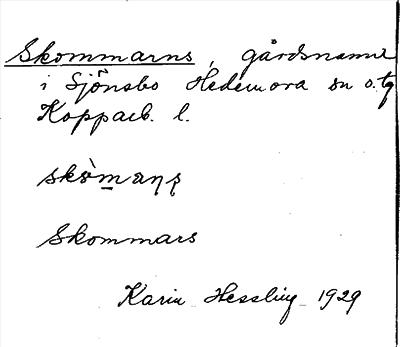 Skommarns, gårdsnamn
i Sjönsbo Hedemora sn o. tg
Kopparb. l.
skòmaṇṣ
Skommars
Karin Hessling 1929